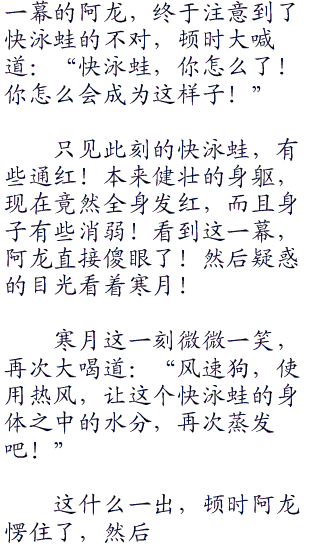 一幕的阿龙，终于注意到了
快泳蛙的不对，顿时大喊
道：“快泳蛙，你怎么了！
你怎么会成为这样子！”
只见此刻的快泳蛙，有
些通红！本来健壮的身躯，
现在竟然全身发红，而且身
子有些消弱！看到这一幕，
阿龙直接傻眼了！然后疑惑
的目光看着寒月！
寒月这一刻微微一笑，
再次大喝道：“风速狗，使
用热风，让这个快泳蛙的身
体之中的水分，再次蒸发
吧！”
这什么一出，顿时阿龙
愣住了，然后